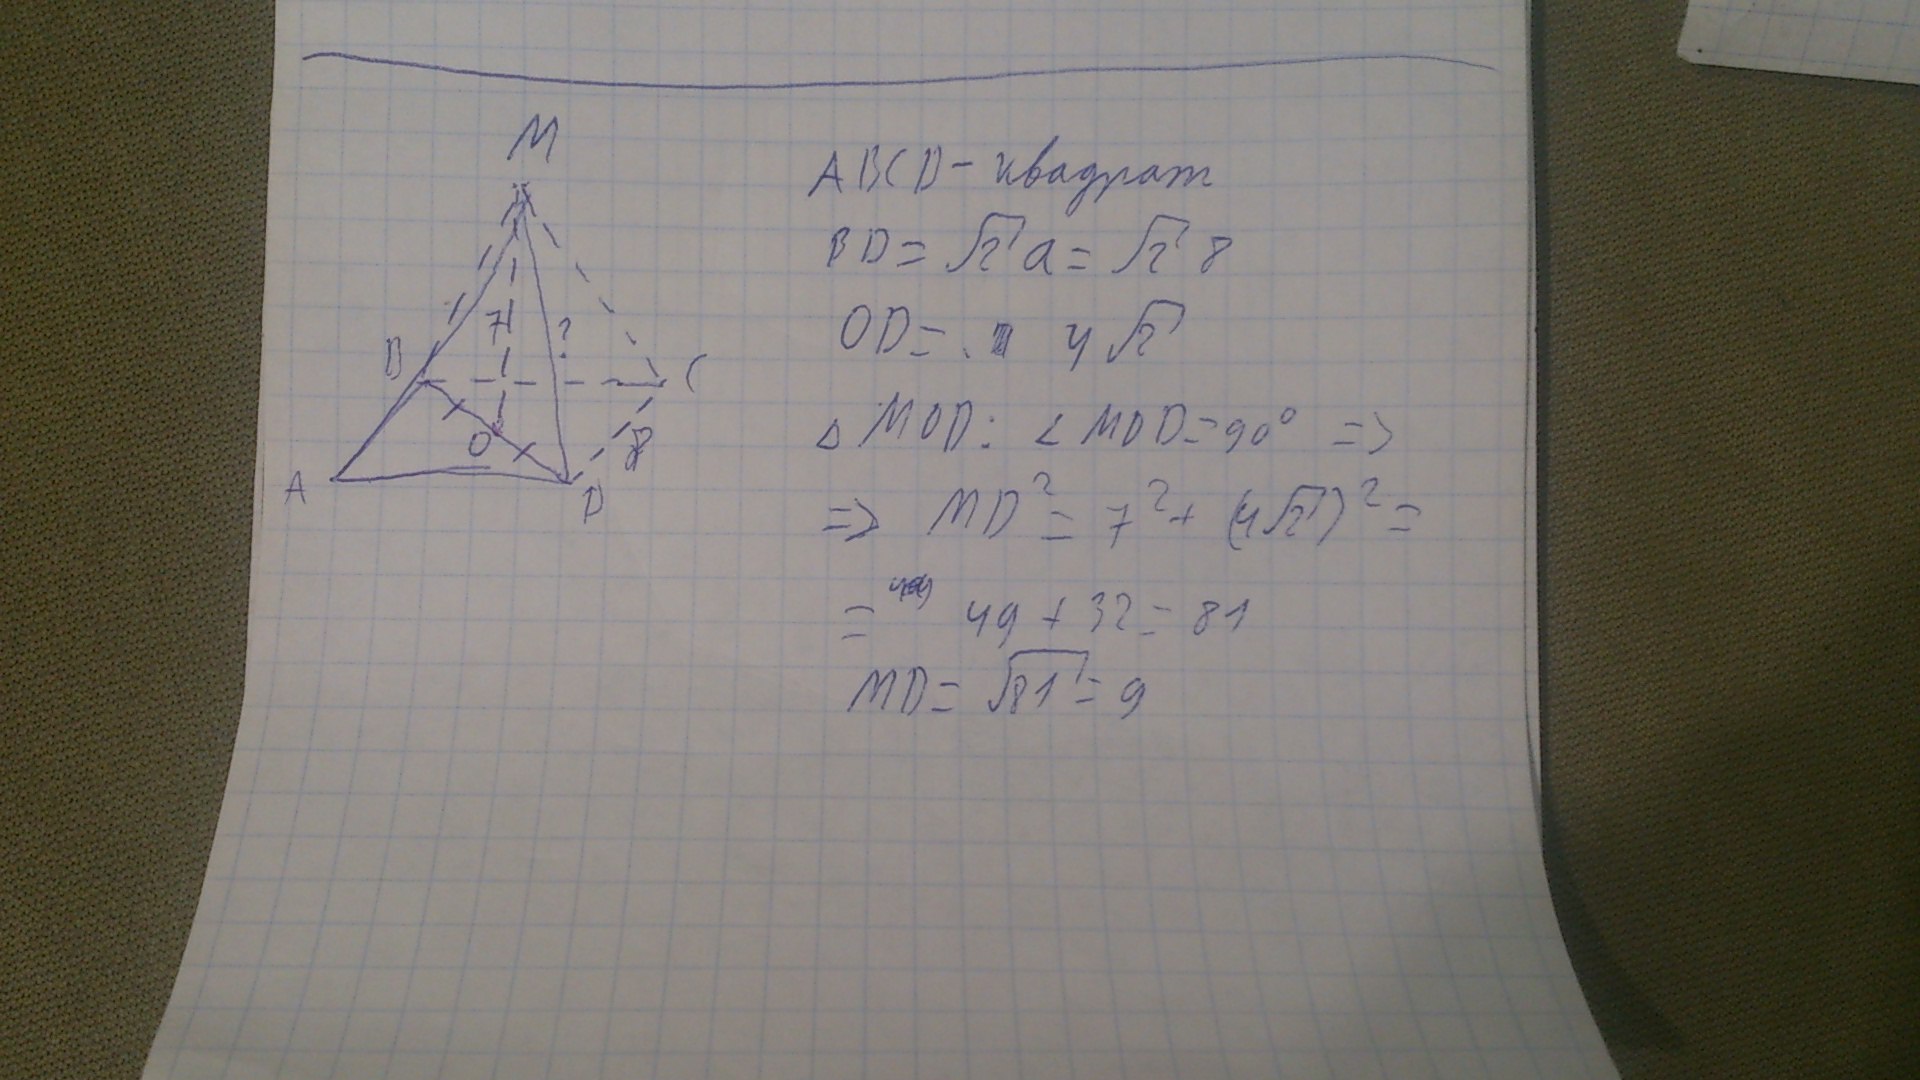 M
7
?
B
C
O
8
A
D
ABCD - квадрат
BD = √2 a = √2 8
OD = 4√2
△ MOD: ∠ MOD = 90° =>
=> MD² = 7² + (4√2)² =
= 49 + 32 = 81
MD = √81 = 9